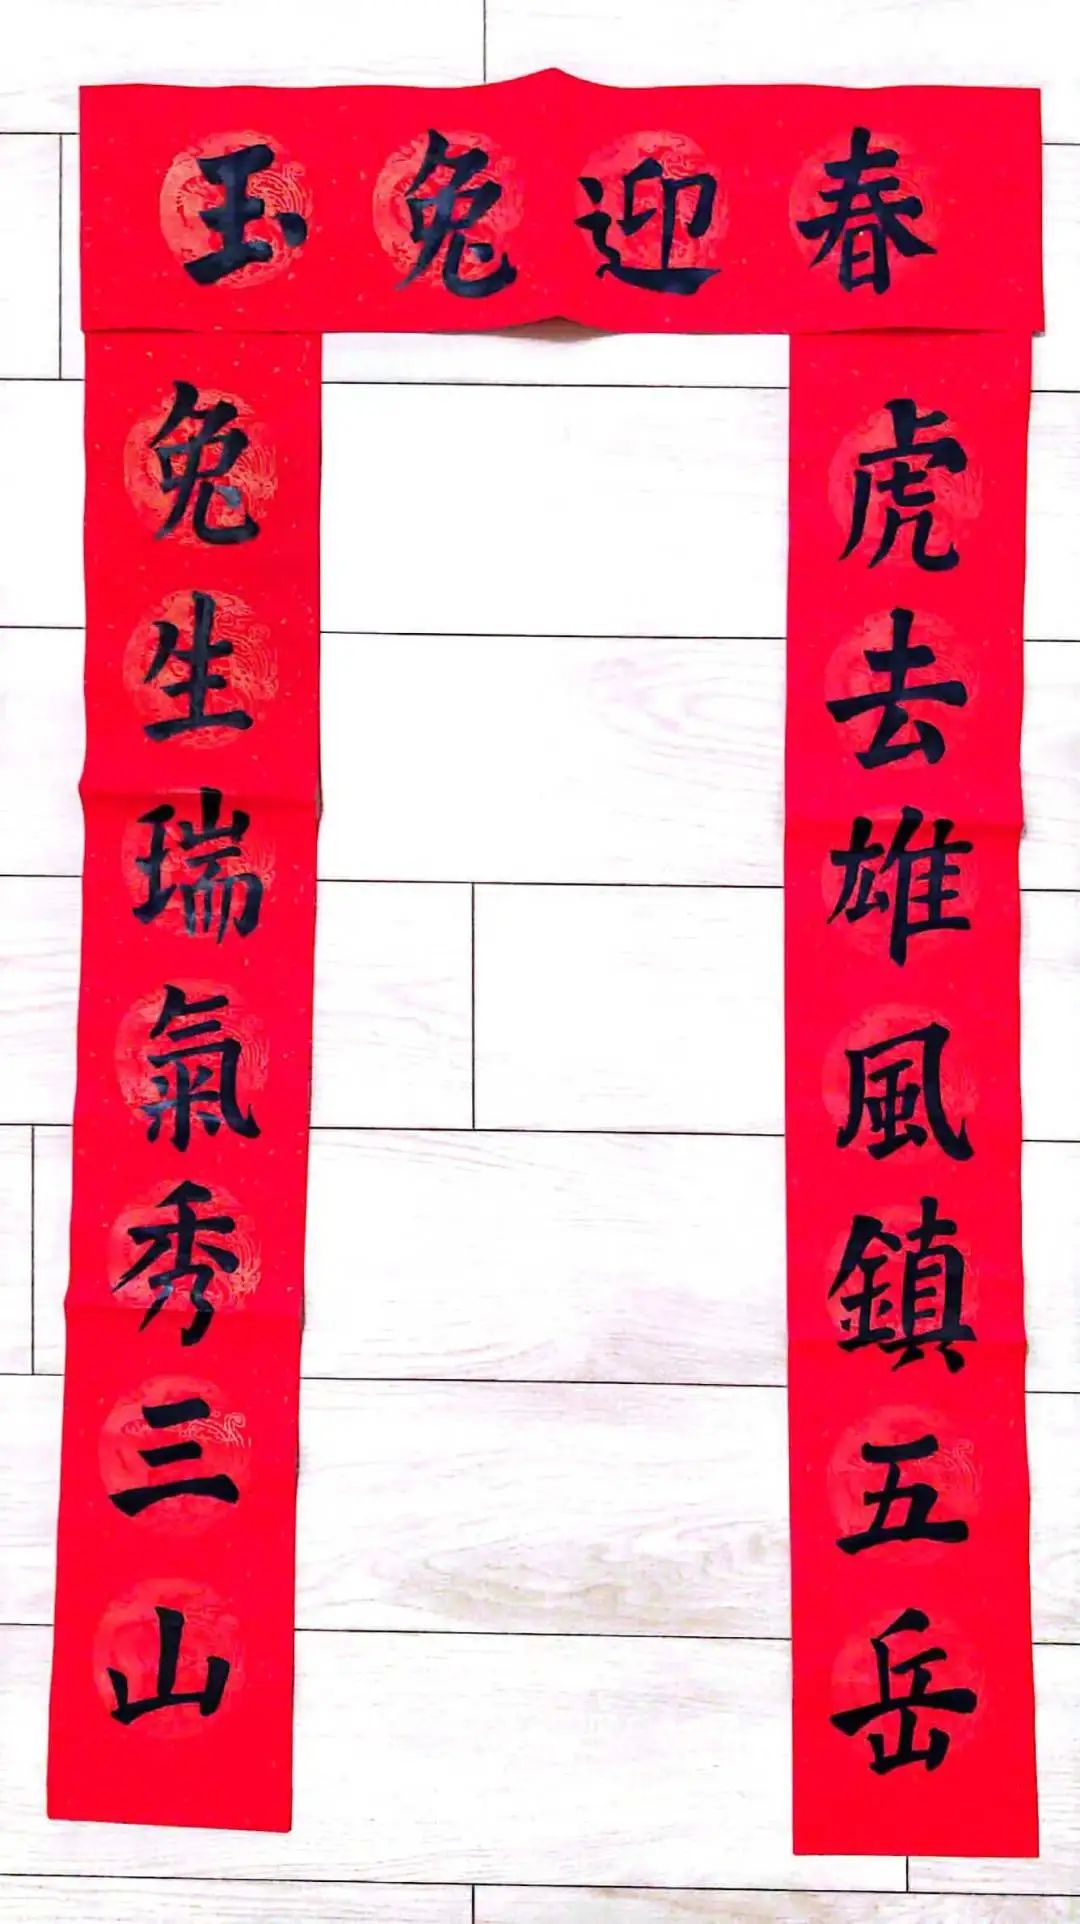 玉兔迎春
虎去雄風鎮五岳
兔生瑞氣秀三山